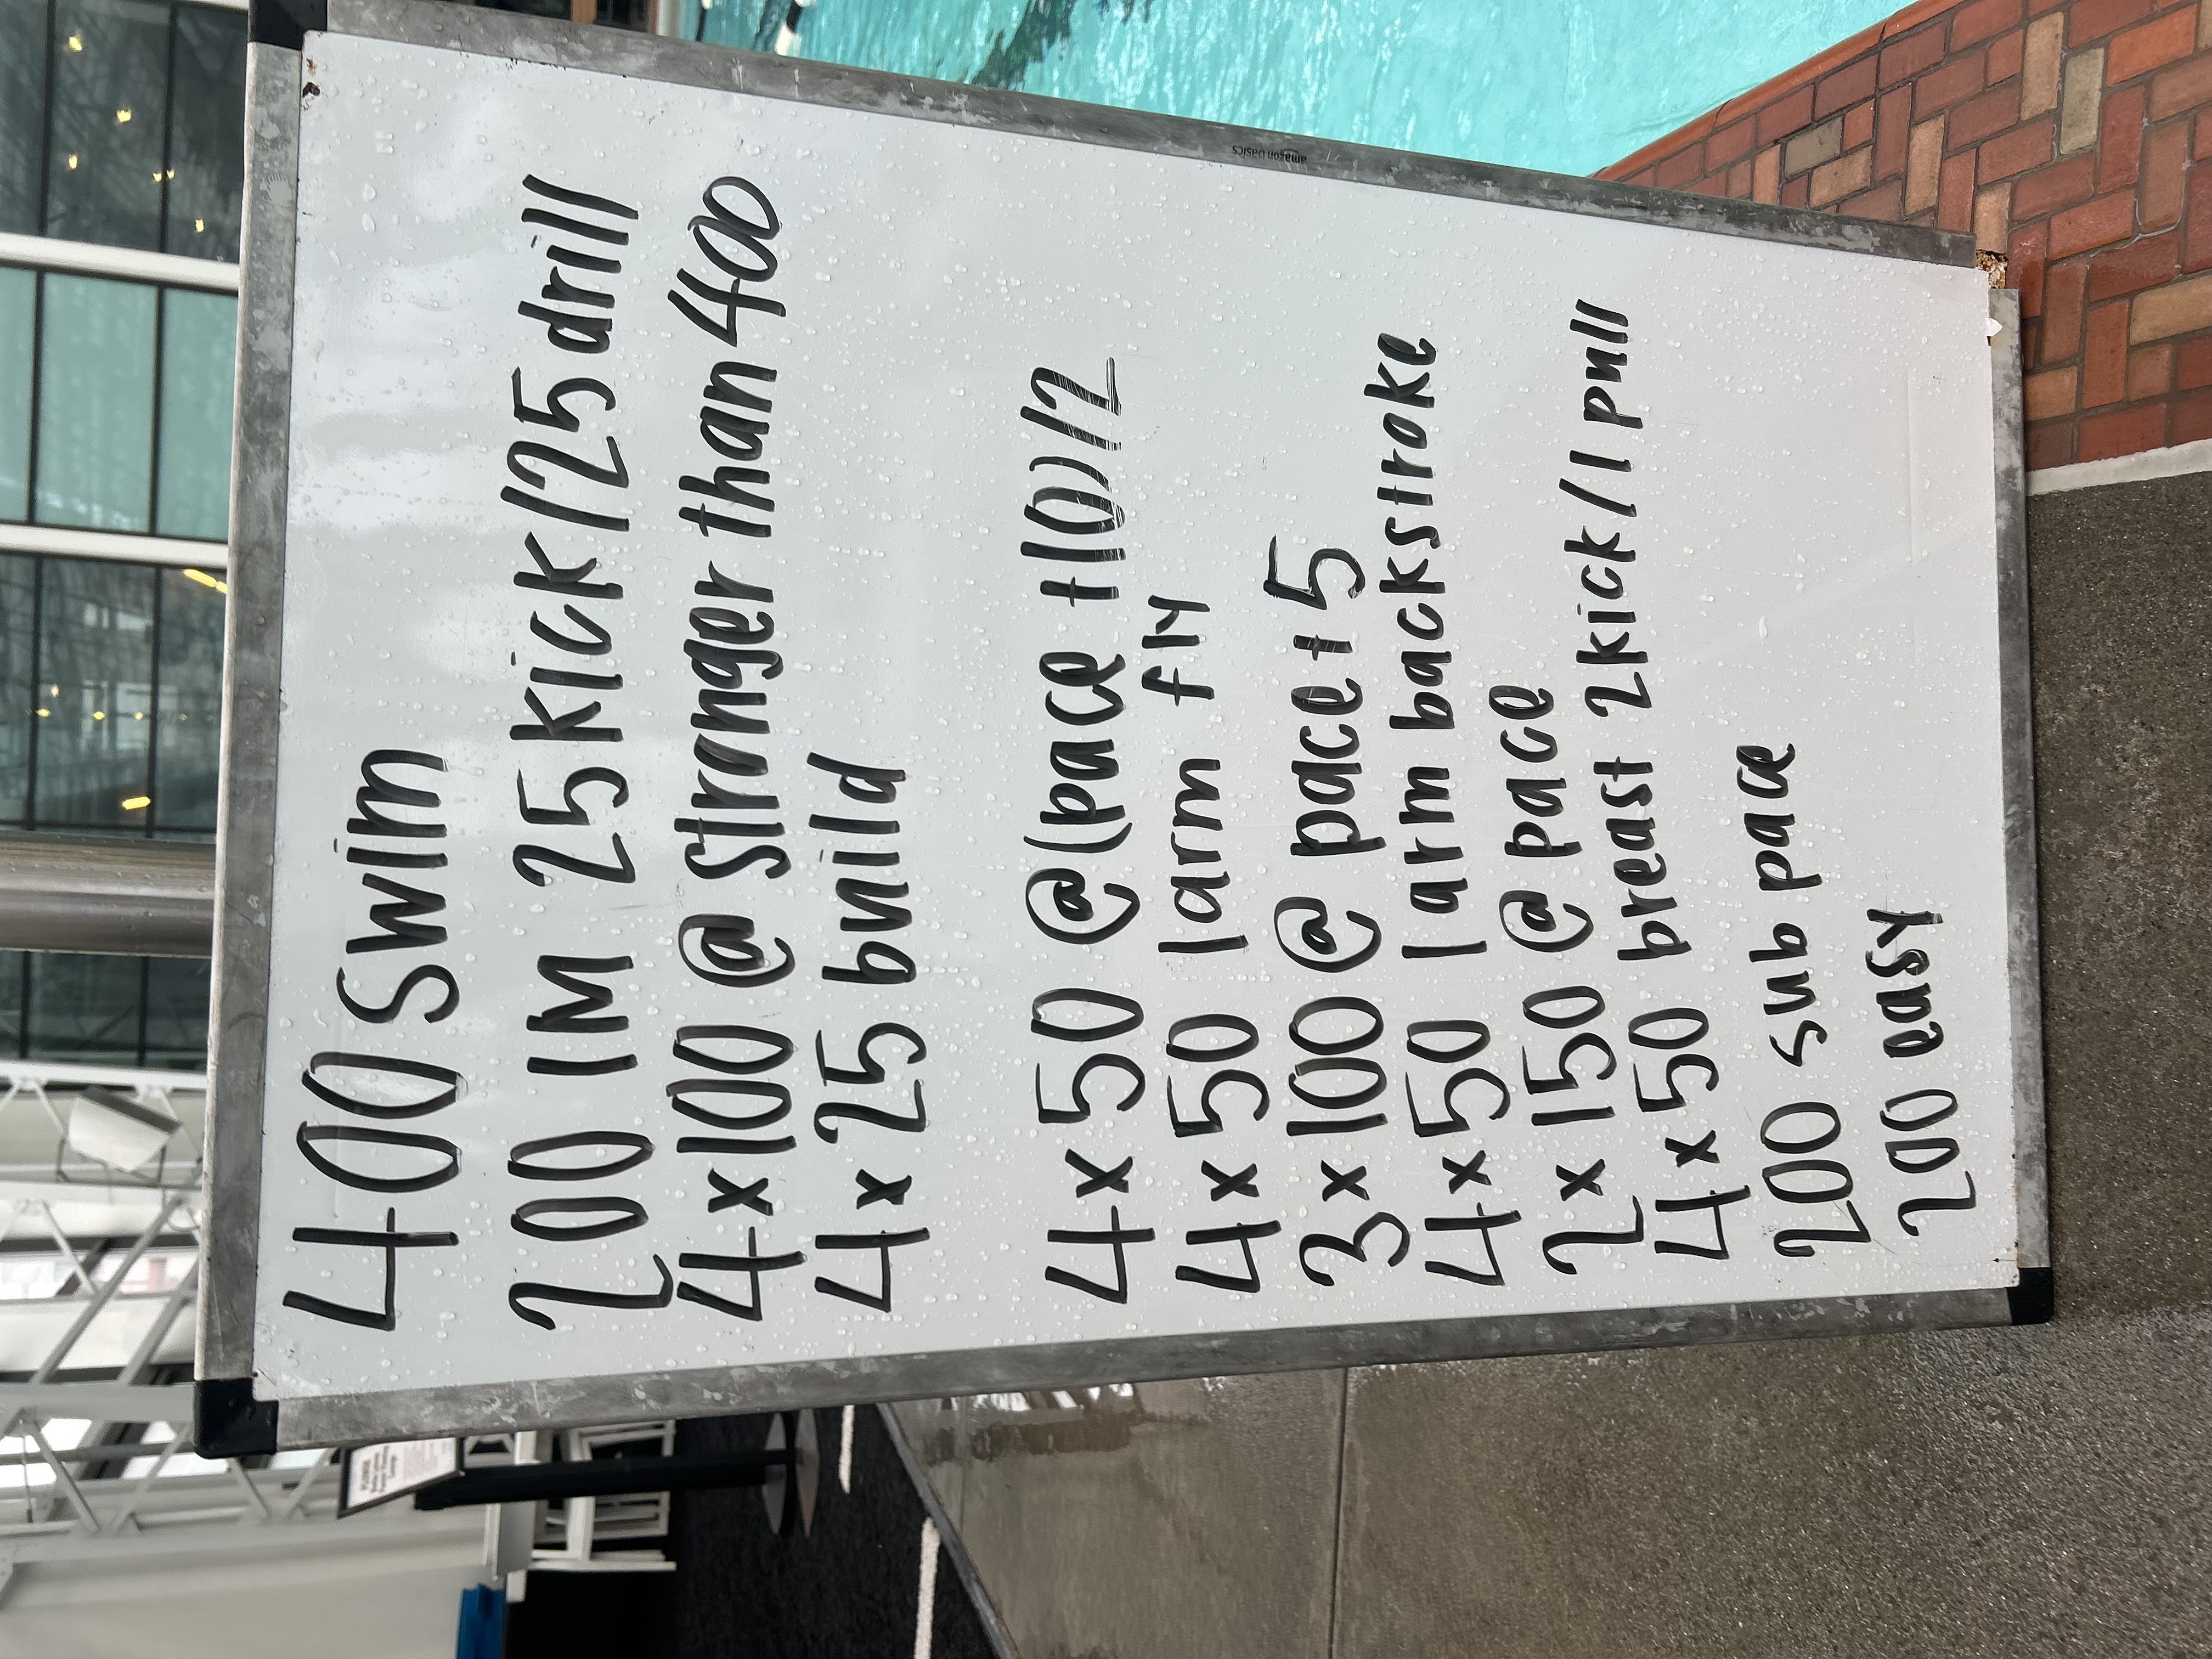 400 swim
200 IM 25 kick/25 drill
4x100 @ stronger than 400
4x25 build
4x50 @(pace +10)/2
4x50 1 arm fly
3x100 @ pace +5
4x50 1 arm backstroke
2x150 @ pace
4x50 breast 2kick/1 pull
200 sub pace
200 easy
amazon basics